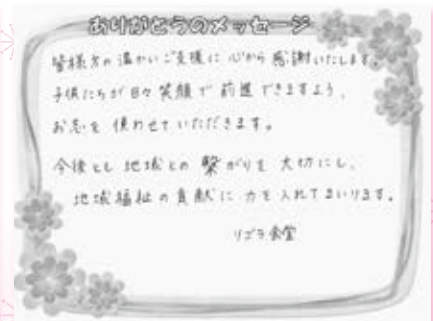 ありがとうのメッセージ
皆様方の温かいご支援に心から感謝いたします。
子供たちが日々笑顔で前進できますよう、
お志を使わせていただきます。
今後とも地域との繋がりを大切にし、
地域福祉の貢献に力を入れてまいります。
リゴラ食堂